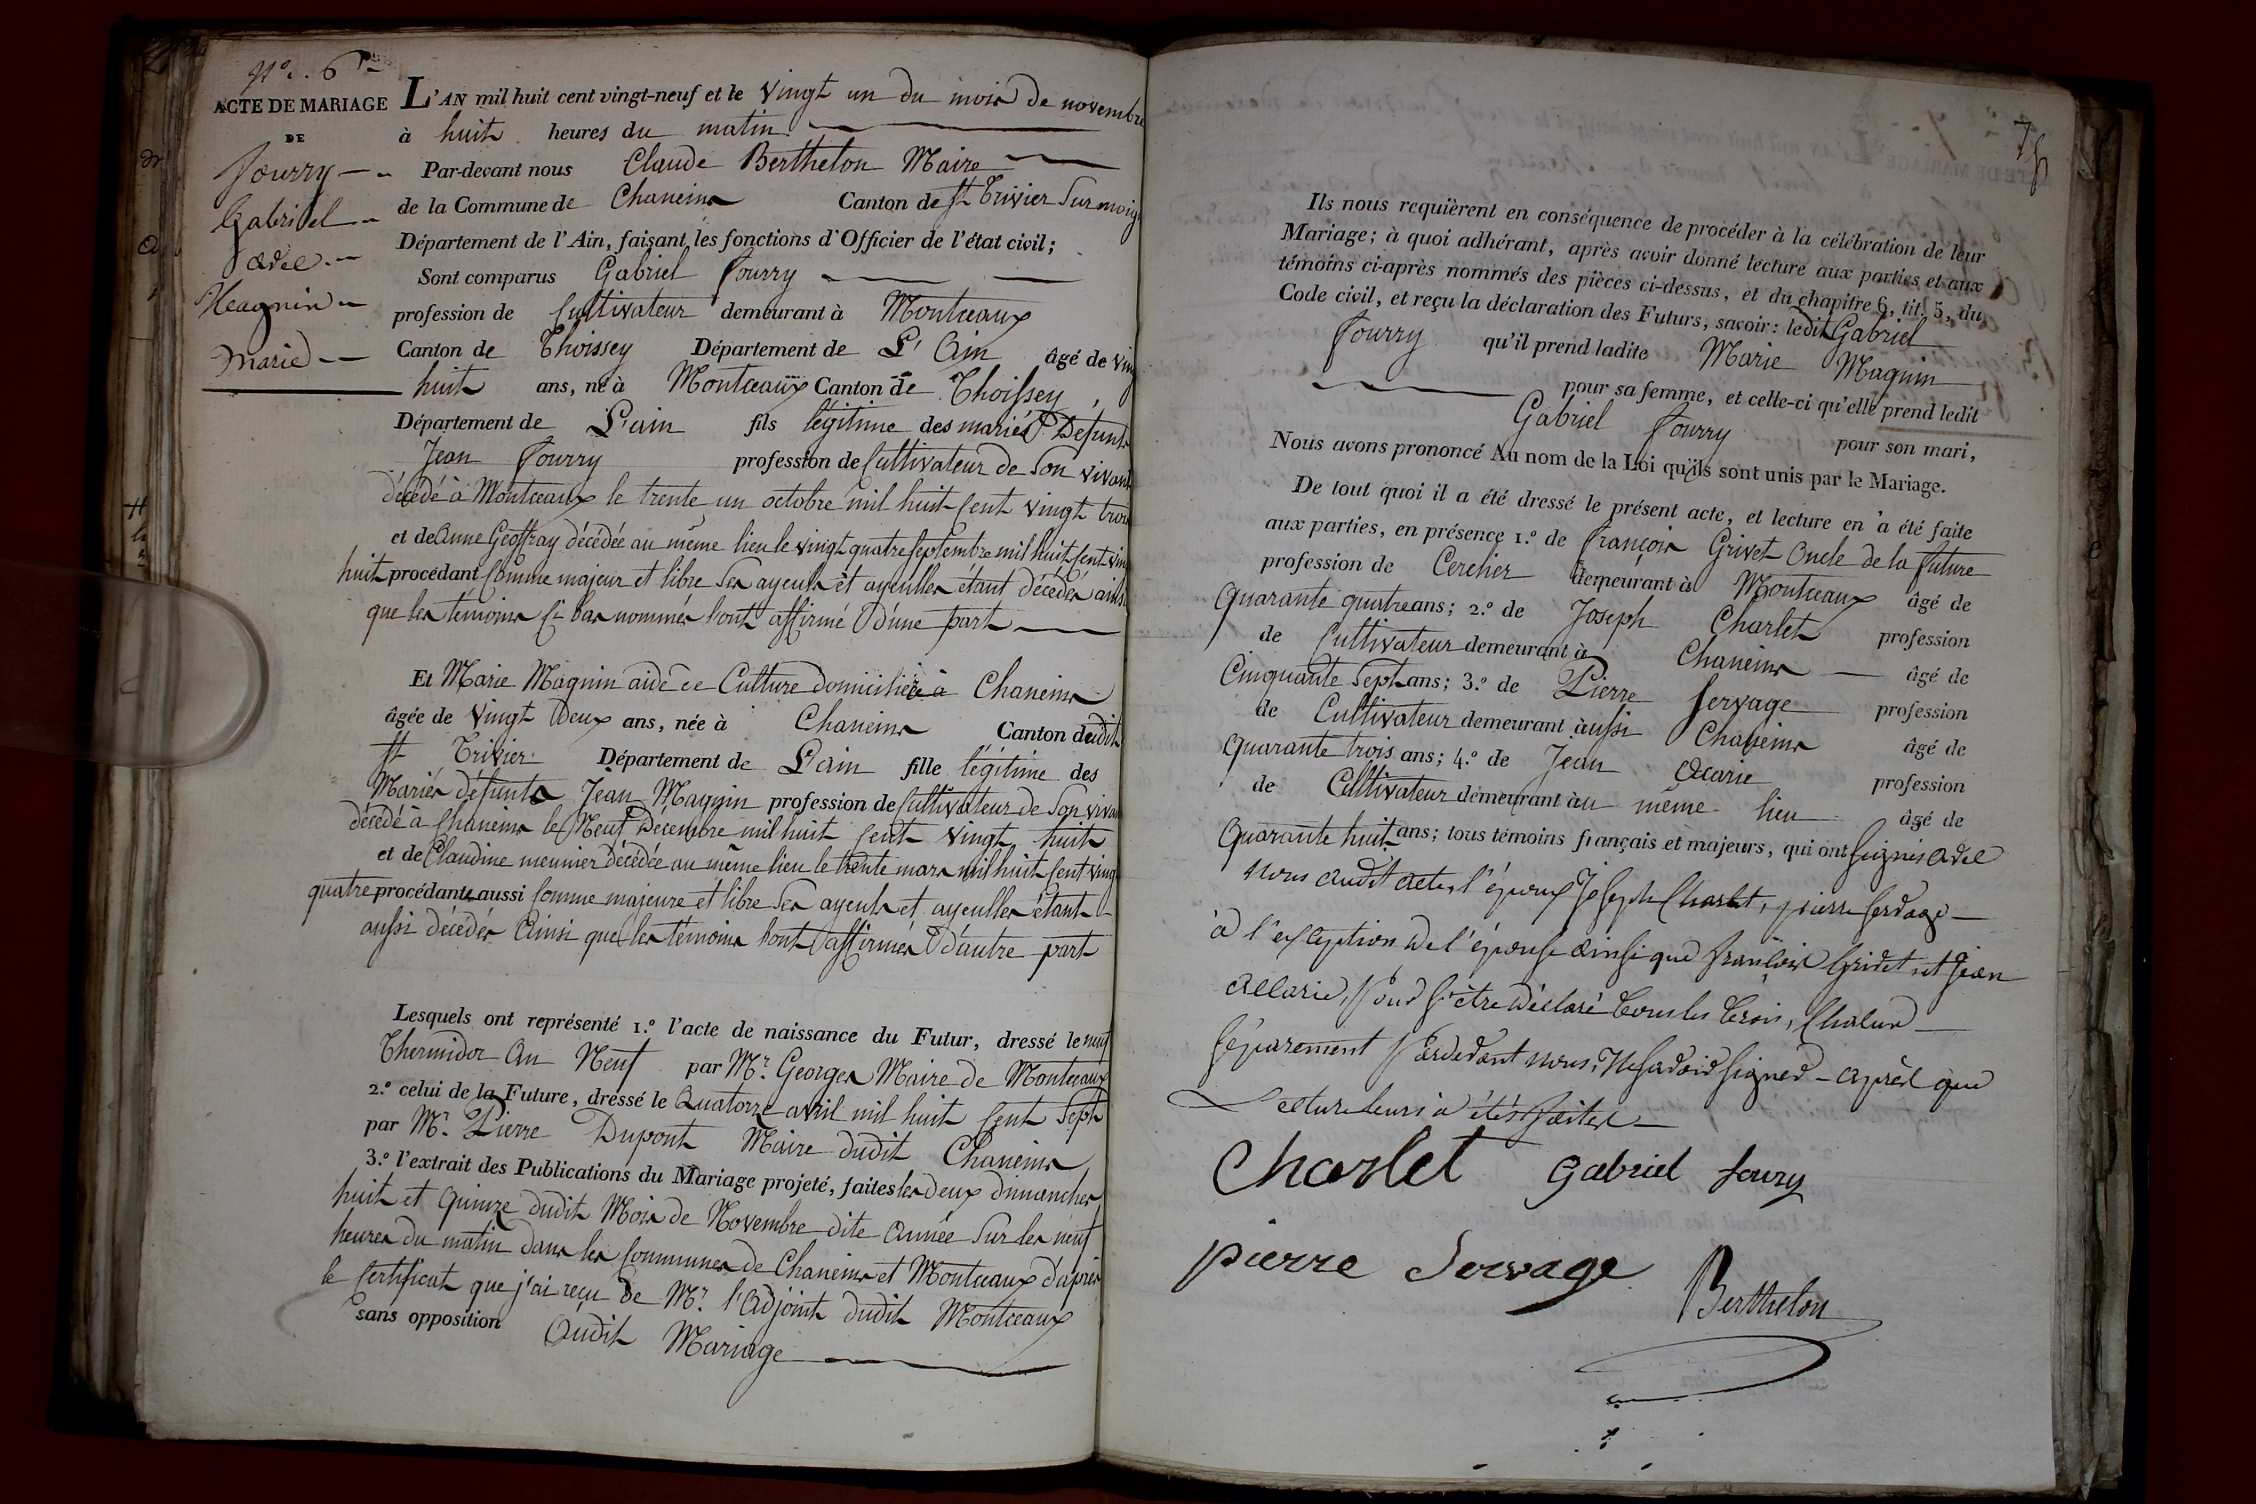 N.o 6
ACTE DE MARIAGE
DE
fourry
Gabriel
avec
Magnin
Marie
L'AN mil huit cent vingt-neuf et le vingt un du mois de novembre
à huit heures du matin
Par-devant nous Claude Berthelon Maire
de la Commune de Chaneins Canton de St Trivier Sur moig
Département de l'Ain, faisant les fonctions d'Officier de l'état civil;
Sont comparus Gabriel fourry
profession de Cultivateur demeurant à Montceaux
Canton de Thoissey Département de L'Ain âgé de ving
huit ans, né à Montceaux Canton de Thoissey,
Département de L'ain fils légitime des mariés Defunts
Jean fourry profession de Cultivateur de Son vivant
décédé à Montceaux le trente un octobre mil huit Cent vingt trois
et de Anne Geoffray décédée au même lieu le vingt quatre Septembre mil huit Cent ving
huit procédant Comme majeur et libre Ses ayeuls et ayeulles étant décédés ainsi
que les témoins Ci bas nommés l'ont affirmé D'une part
Et Marie Magnin aide ce Culture domiciliée à Chaneins
âgée de vingt Deux ans, née à Chaneins Canton dudit
St Trivier Département de L'ain fille légitime des
Mariés défunts Jean Magnin profession de Cultivateur de Son vivant
décédé à Chaneins le Neuf Décembre mil huit Cent vingt huit
et de Claudine meunier Décédée au même lieu le trente mars mil huit Cent ving
quatre procédante aussi Comme majeure et libre Ses ayeuls et ayeulles étant
aussi décédés Ainsi que les témoins l'ont affirmés D'autre part
Lesquels ont représenté 1.o l'acte de naissance du Futur, dressé le neuf
Thermidor An Neuf par Mr. Georges Maire de Montceaux
2.o celui de la Future, dressé le Quatorze avril mil huit Cent Sept
par Mr. Pierre Dupont Maire dudit Chaneins
3.o l'extrait des Publications du Mariage projeté, faites les deux dimanches
huit et Quinze dudit Mois de Novembre dite Année Sur les neuf
heures du matin dans les Communes de Chaneins et Montceaux d'après
le Certificat que j'ai reçu de Mr. l'Adjoint dudit Montceaux
sans opposition Audit Mariage
Ils nous requièrent en conséquence de procéder à la célébration de leur
Mariage; à quoi adhérant, après avoir donné lecture aux parties et aux
témoins ci-après nommés des pièces ci-dessus, et du chapitre 6, tit. 5, du
Code civil, et reçu la déclaration des Futurs, savoir: ledit Gabriel
fourry qu'il prend ladite Marie Magnin
pour sa femme, et celle-ci qu'elle prend ledit
Gabriel fourry pour son mari,
Nous avons prononcé Au nom de la Loi qu'ils sont unis par le Mariage.
De tout quoi il a été dressé le présent acte, et lecture en a été faite
aux parties, en présence 1.o de françois Grivet Oncle de la future
profession de Cerclier demeurant à Montceaux âgé de
Quarante quatre ans; 2.o de Joseph Charlet profession
de Cultivateur demeurant à Chaneins âgé de
Cinquante Sept ans; 3.o de Pierre Servage profession
de Cultivateur demeurant aussi Chaneins âgé de
Quarante trois ans; 4.o de Jean profession
de Cultivateur demeurant au même lieu âgé de
Quarante huit ans; tous témoins français et majeurs, qui ont Seignés avec
Nous audit acte, l'époux Joseph Charlet, pierre Servage
à l'exception de l'épouse ainsi que françois Grivet et Jean
pour s'être déclaré tous les trois, Chacun
séparement Pardevant nous, Ne savoir signer - après que
Lecture leurs a étés faites
Charlet Gabriel foury
pierre Servage
Berthelon